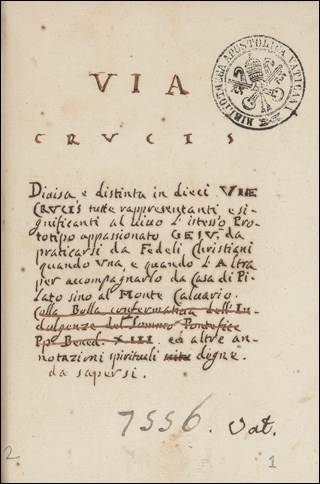 VIA
CRVCIS
BIBLIOTHECA APOSTOLICA VATICANA
Diuisa e distinta in dieci VIIE
CRVCIS tutte rappresentanti e si-
gnificanti al uiuo l'istesso Pro-
totipo appassionato GESV. da
praticarsi da Fedeli Christiani
quando Vna e quando l'Altra
per accompagnarlo da Casa di Pi-
lato sino al Monte Caluario.
Colla Bolla confermatiua dell'In-
dulgenze del Sommo Pontefice
Pp. Bened. XIII. ed altre an-
notazioni spirituali degne.
da sapersi.
7556. Vat.
2
1